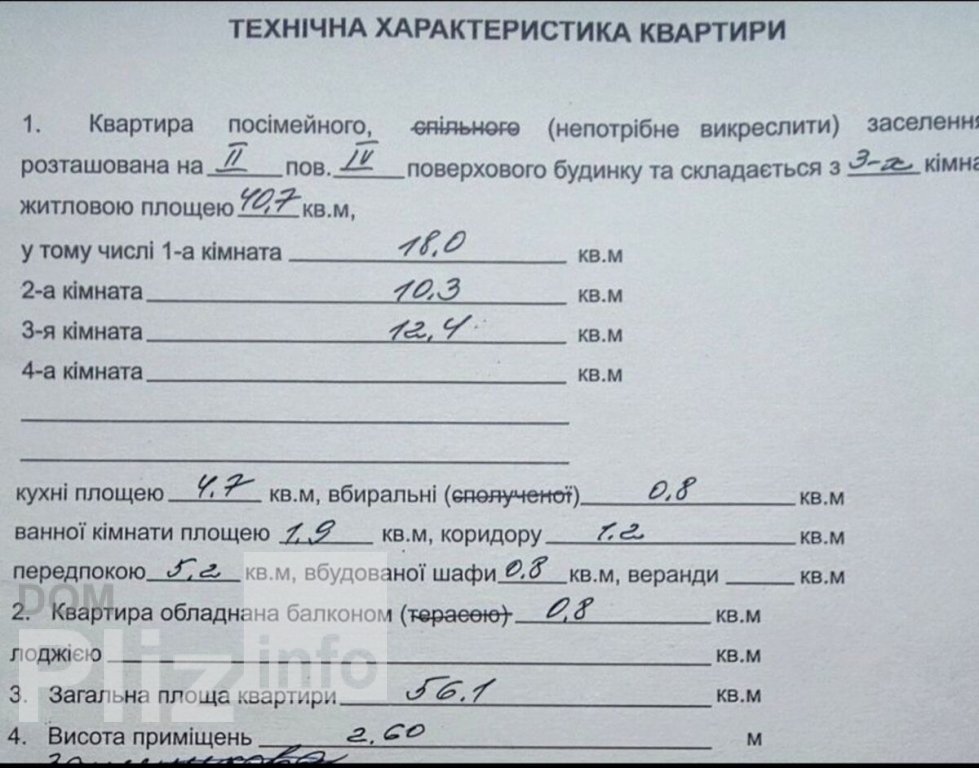 ТЕХНІЧНА ХАРАКТЕРИСТИКА КВАРТИРИ
1. Квартира посімейного, спільного (непотрібне викреслити) заселення
розташована на II пов. IV поверхового будинку та складається з 3-х кімна
житловою площею 40,7 кв.м,
у тому числі 1-а кімната 18,0 кв.м
2-а кімната 10,3 кв.м
3-я кімната 12,4 кв.м
4-а кімната кв.м
кухні площею 4,7 кв.м, вбиральні (сполученої) 0,8 кв.м
ванної кімнати площею 1,9 кв.м, коридору 1.2 кв.м
передпокою 5,2 кв.м, вбудованої шафи 0,8 кв.м, веранди кв.м
DOM
2. Квартира обладнана балконом (терасою) 0,8 кв.м
лоджією кв.м
Pliz info
3. Загальна площа квартири 56.1 кв.м
4. Висота приміщень 2.60 м